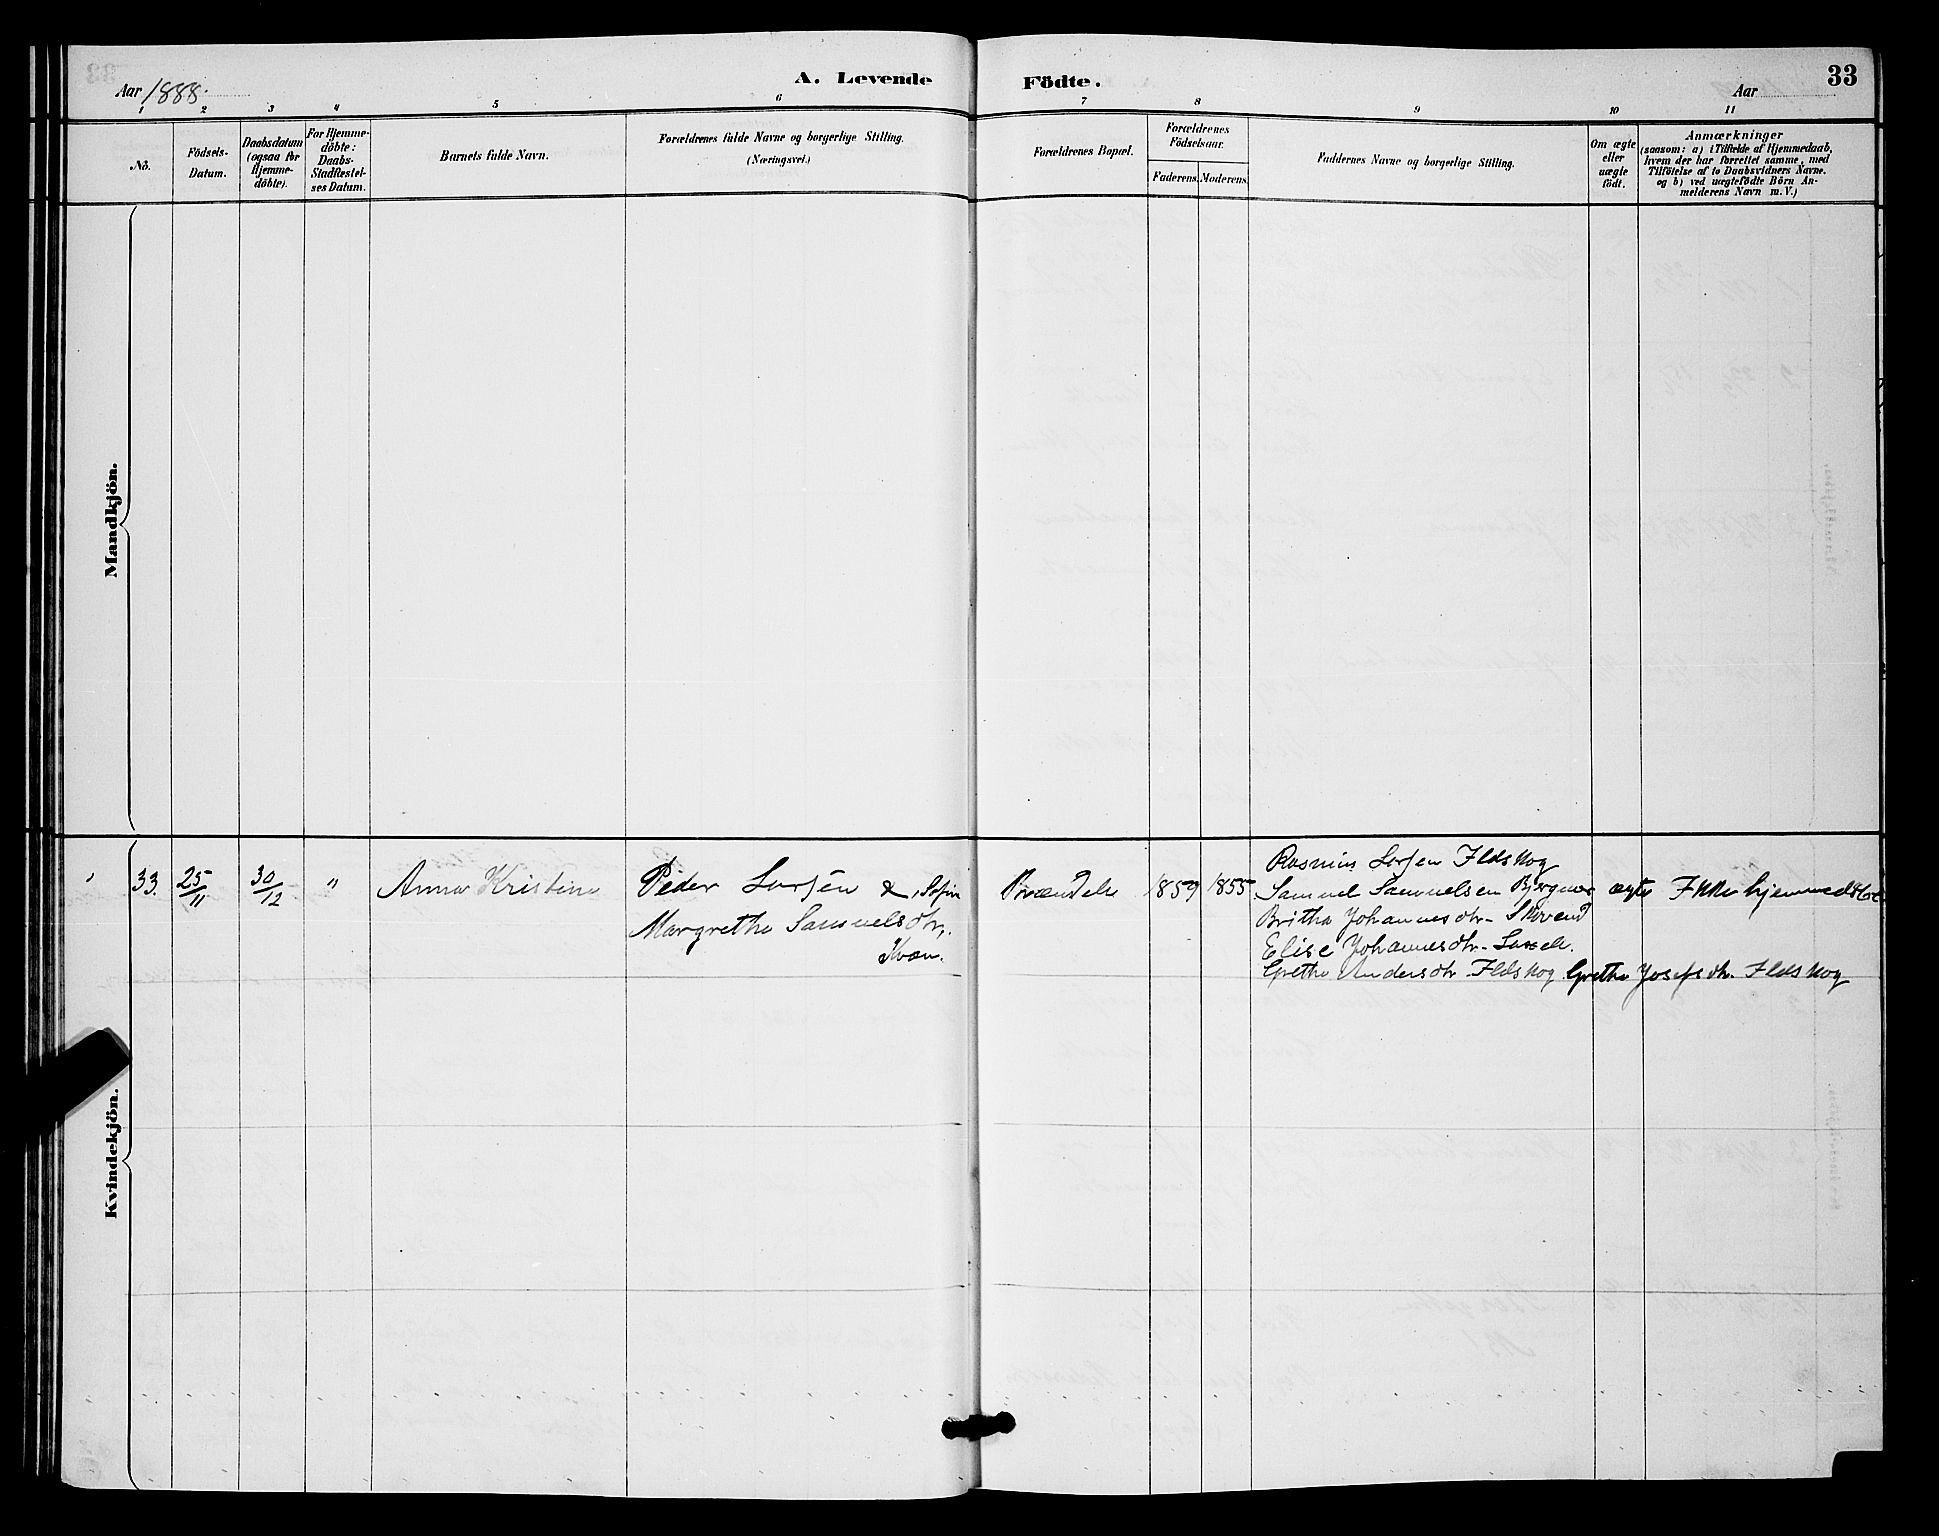 A. Levende Födte.
33
Aar 1888.
Aar
1 2 3 4 5 6 7 8 9 10 11
No.
Födsels-
Datum.
Daabsdatum
(ogsaa for
Hjemme-
döbte).
For Hjemme-
döbte:
Daabs-
Stadfæstel-
ses Datum.
Barnets fulde Navn.
Forældrenes fulde Navne og borgerlige Stilling.
(Næringsvei.)
Forældrenes Bopæl.
Forældrenes
Födselsaar.
Faderens. Moderens.
Faddernes Navne og borgerlige Stilling.
Om ægte
eller
uægte
födt.
Anmærkninger
(saasom: a) i Tilfælde af Hjemmedaab,
hvem der har forrettet samme, med
Tilföielse af to Daabsvidners Navne.
og b) ved uægtefödte Börn An-
melderens Navn m. V.)
Mandkjön.
Kvindekjön.
33. 25/11 30/12 " Anna Kristina
Peder Larsen &
Margretha Samuelsdtr,
Kvæn.
1859 1855
Rasmus Larsen Ildskog
Samuel Samuelsen
Britha Johannesdtr-
Elise Johannesdtr-
Grethe Andersdtr Ildskog Grethe Josefsdtr. Ildskog
ægte Ikke hjemmedöbt